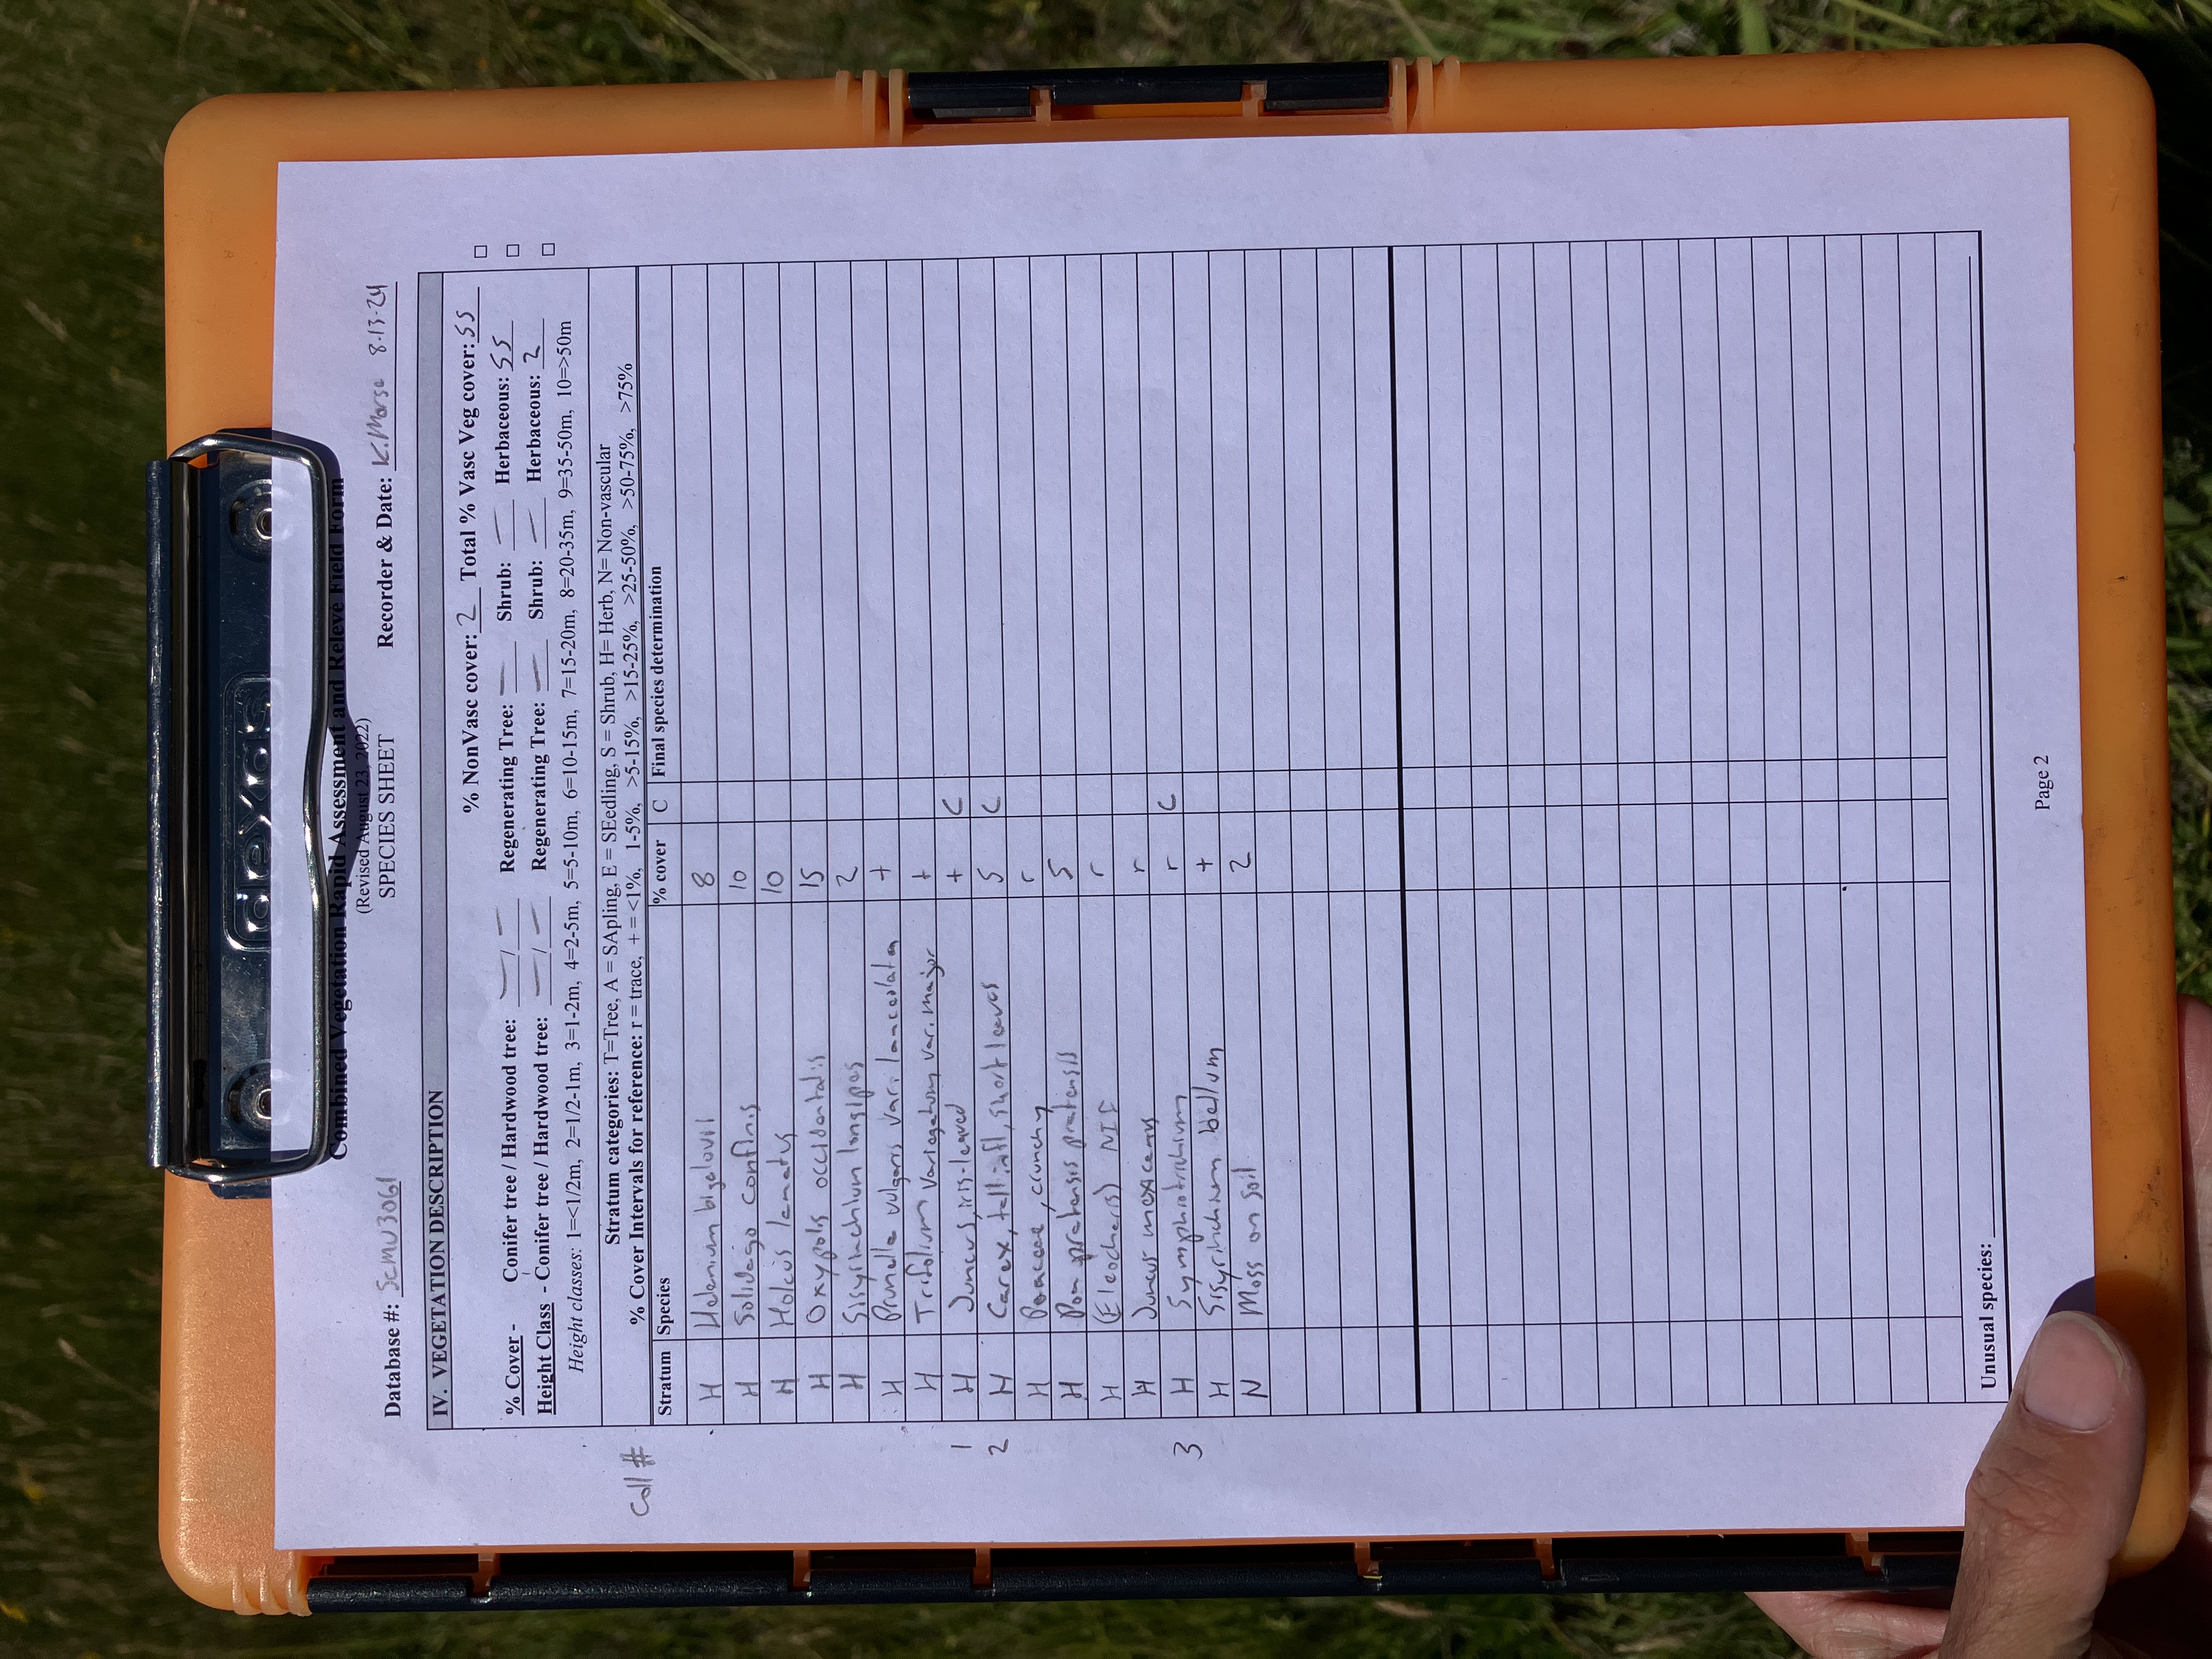 dexas
Combined Vegetation Rapid Assessment and Relevé Field Form
(Revised August 23, 2022)
SPECIES SHEET
Database #: SCMU3061 Recorder & Date: K. Morse 8-13-24
IV. VEGETATION DESCRIPTION
% NonVasc cover: 2 Total % Vasc Veg cover: 55 □
% Cover - Conifer tree / Hardwood tree: — / — Regenerating Tree: — Shrub: — Herbaceous: 55 □
Height Class - Conifer tree / Hardwood tree: — / — Regenerating Tree: — Shrub: — Herbaceous: 2 □
Height classes: 1=<1/2m, 2=1/2-1m, 3=1-2m, 4=2-5m, 5=5-10m, 6=10-15m, 7=15-20m, 8=20-35m, 9=35-50m, 10=>50m
Stratum categories: T=Tree, A = SApling, E = SEedling, S = Shrub, H= Herb, N= Non-vascular
% Cover Intervals for reference: r = trace, + = <1%, 1-5%, >5-15%, >15-25%, >25-50%, >50-75%, >75%
Col # Stratum Species % cover C Final species determination
H Helenium bigelovii 8
H Solidago confinis 10
H Holcus lanatus 10
H Oxypolis occidentalis 15
H Sisyrinchium longipes 2
H Prunella vulgaris var. lanceolata +
H Trifolium variegatum var. major +
1 H Juncus, iris-leaved + C
2 H Carex, tall infl, short leaves 5 C
H Poaceae, crunchy r
H Poa pratensis pratensis 5
H (Eleocharis) NIF r
H Juncus mexicanus r
3 H Symphyotrichum r C
H Sisyrinchium bellum +
N Moss on soil 2
Unusual species:
Page 2